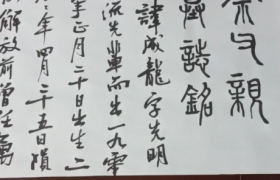 父親
墓誌銘
諱成龍字先明
流先輩而出一九零
年正月二十日出生二
年四月二十五日隕
解放前曾任萬